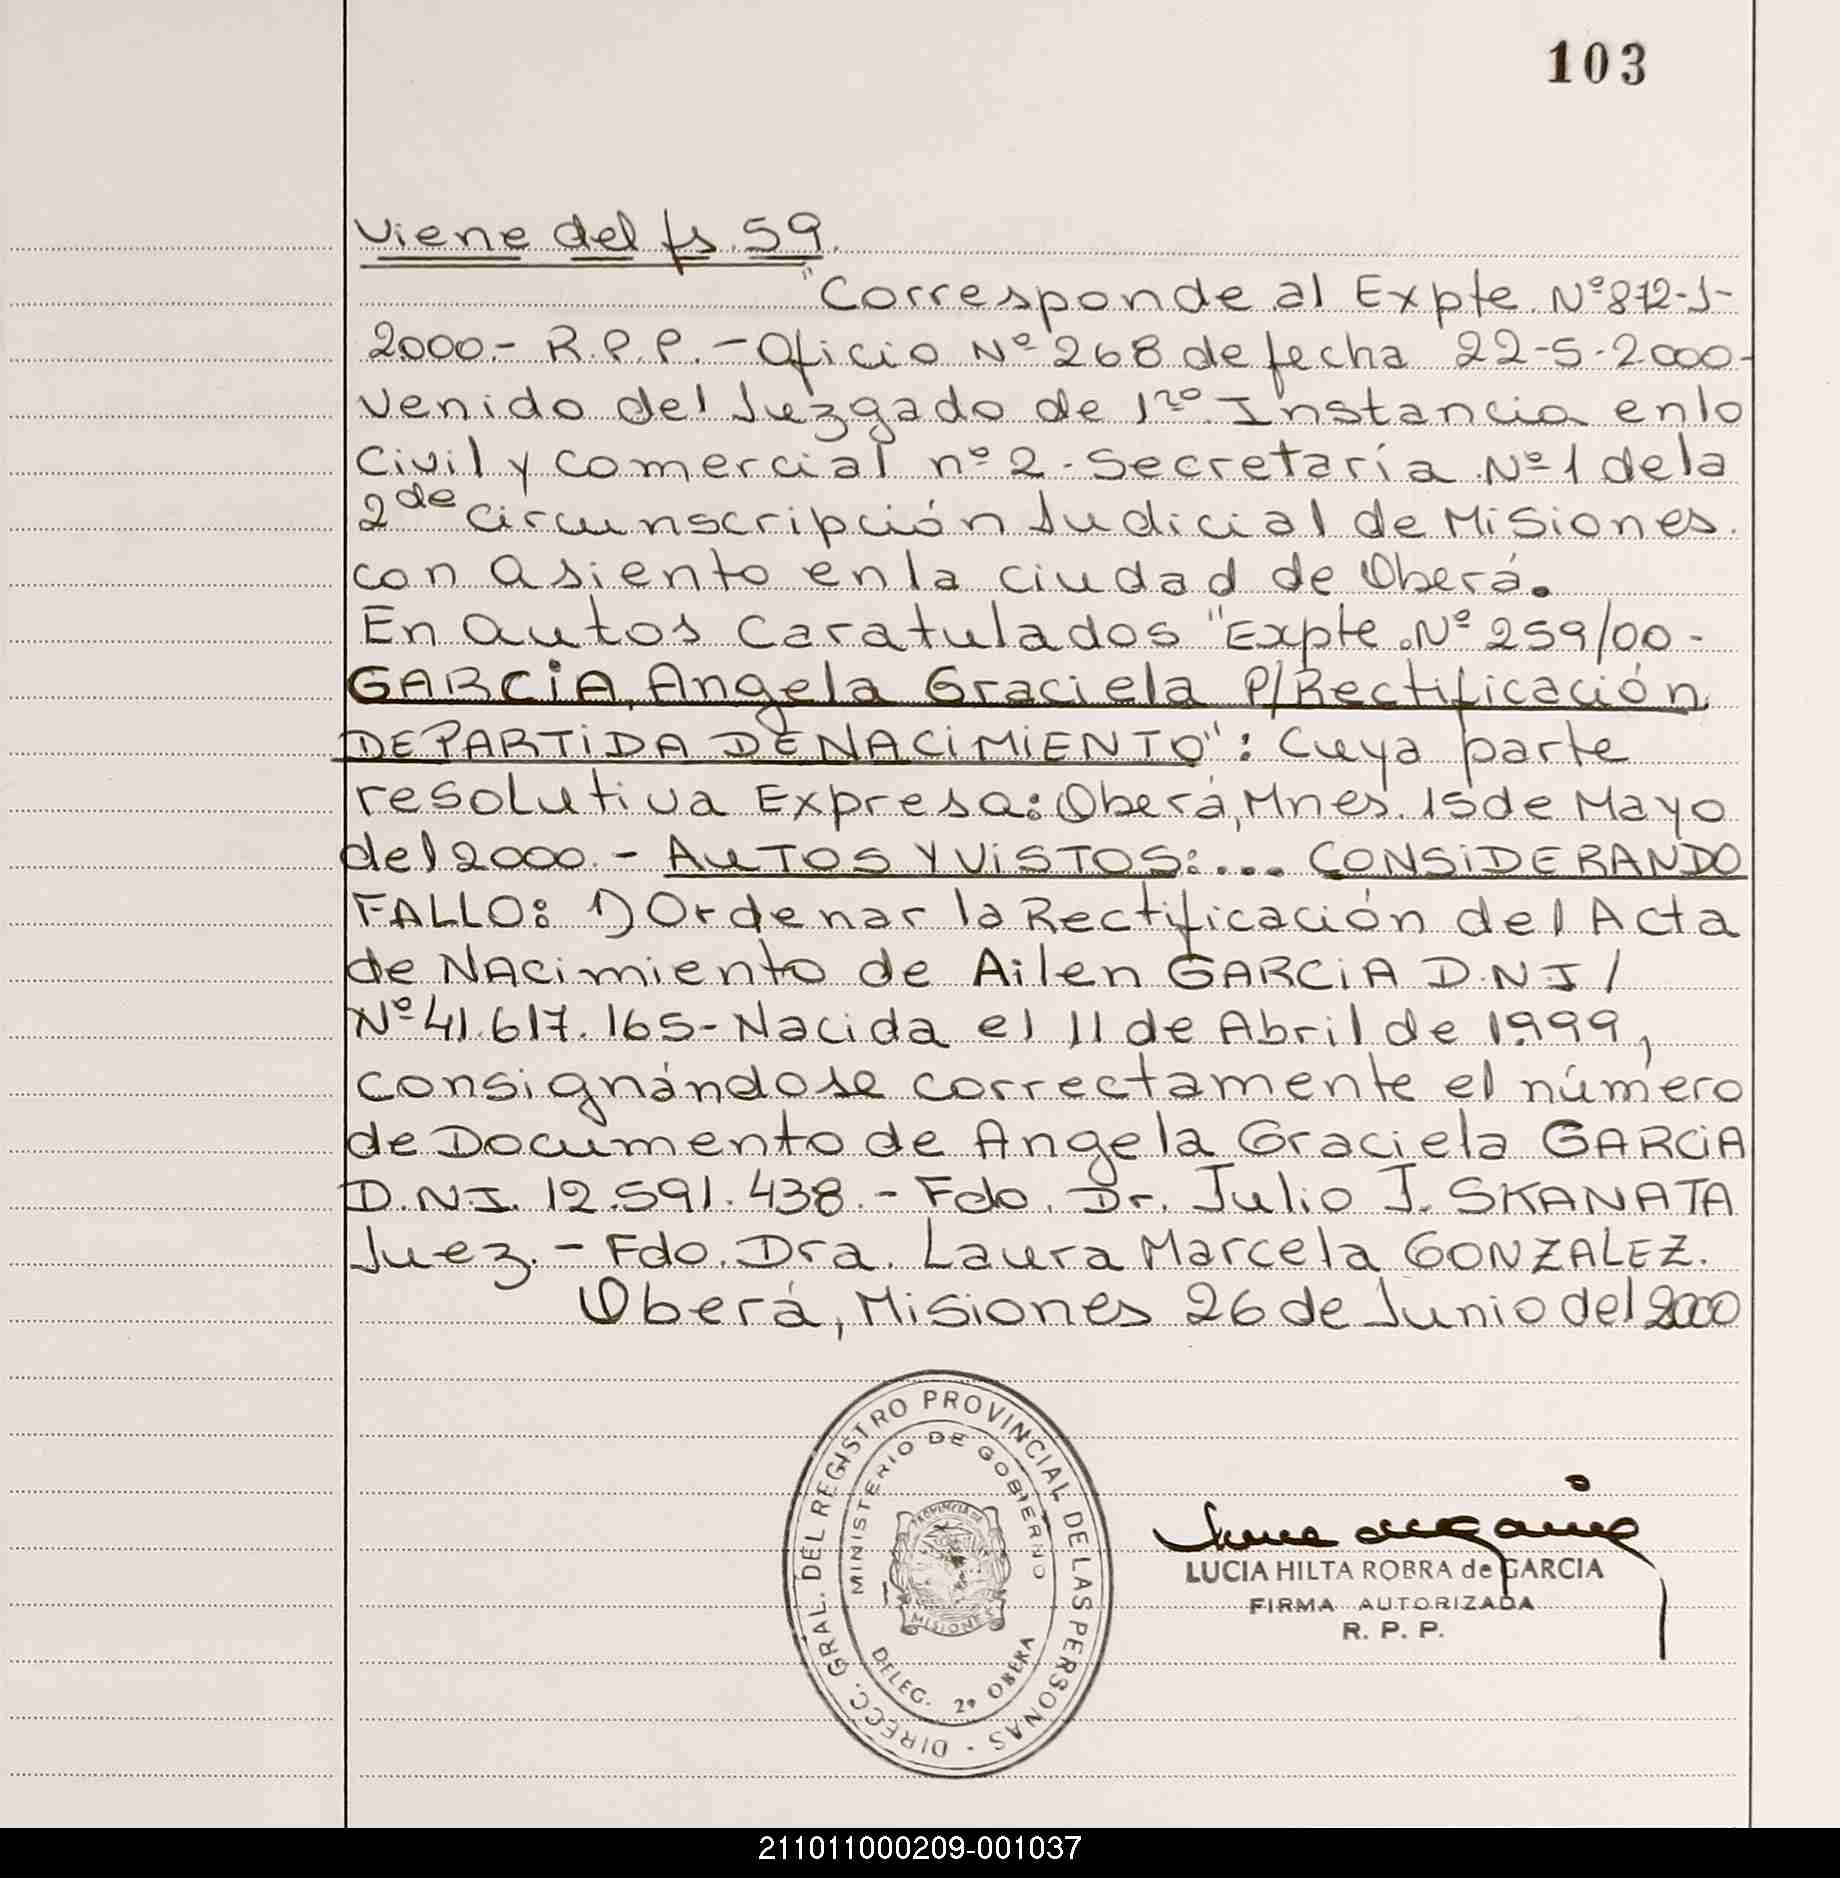 103
Viene del fs. 59.
"Corresponde al Expte. Nº 872-J-
2000.- R.P.P. - Oficio Nº 268 de fecha 22-5-2000-
Venido del Juzgado de 1ro. Instancia en lo
Civil y Comercial nº 2 - Secretaría Nº 1 de la
2de Circunscripción Judicial de Misiones.
con asiento en la ciudad de Oberá.
En autos caratulados "Expte. Nº 259/00-
GARCiA, Angela Graciela P/Rectificación
DE PARTiDA DE NACiMiENTO": Cuya parte
resolutiva Expresa: Oberá, Mnes. 15 de Mayo
del 2000.- AUTOS Y ViSTOS:... CONSiDERANDO
FALLO: 1) Ordenar la Rectificación del Acta
de NAcimiento de Ailen GARCiA D.N.I /
Nº 41.617.165- Nacida el 11 de Abril de 1.999,
consignándose correctamente el número
de Documento de Angela Graciela GARCiA
D.N.I. 12.591.438.- Fdo. Dr. Julio J. SKANATA
Juez.- Fdo. Dra. Laura Marcela GONZALEZ.
Oberá, Misiones 26 de Junio del 2000
DIRECC. GRAL. DEL REGISTRO PROVINCIAL DE LAS PERSONAS -
MINISTERIO DE GOBIERNO
PROVINCIA DE
MISIONES
DELEG. 2ª OBERA
LUCIA HILTA ROBRA de GARCIA
FIRMA AUTORIZADA
R. P. P.
211011000209-001037